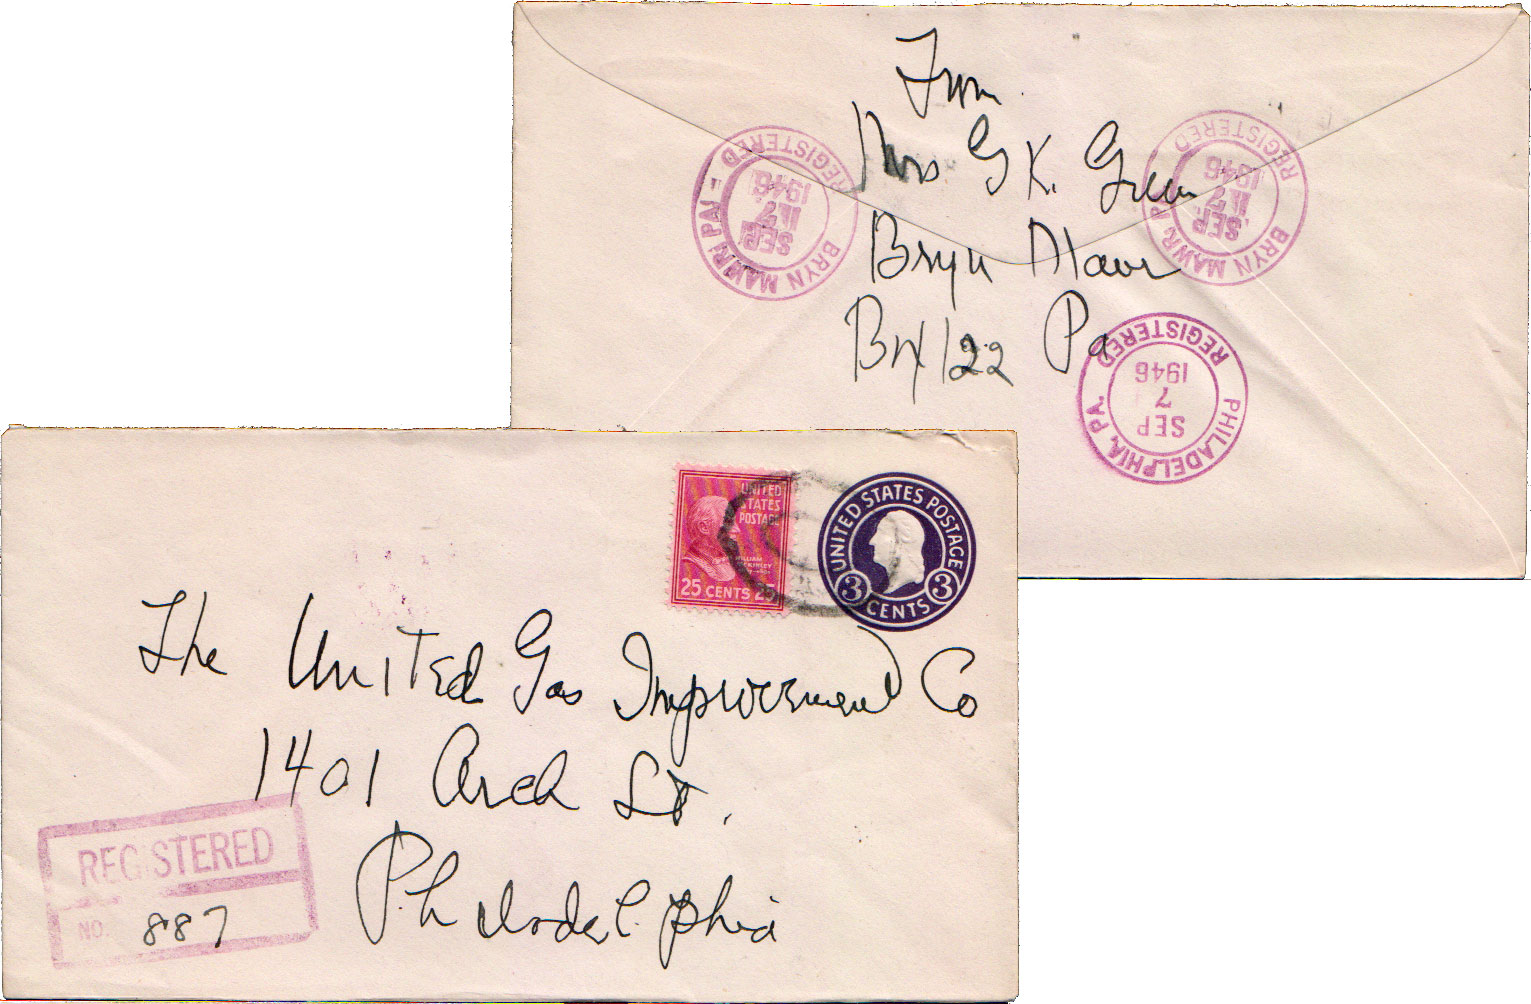 From
Mrs G K. Green
Bryn Mawr
Box 122 Pa
REGISTERED
BRYN MAWR PA
SEP
7
1946
REGISTERED
BRYN MAWR PA
SEP
7
1946
REGISTERED
PHILADELPHIA, PA.
SEP
7
1946
UNITED
STATES
POSTAGE
WILLIAM
McKINLEY
25 CENTS 25
UNITED STATES POSTAGE
3 CENTS 3
The United Gas Improvement Co
1401 Arch St.
Philadelphia
REGISTERED
NO. 887